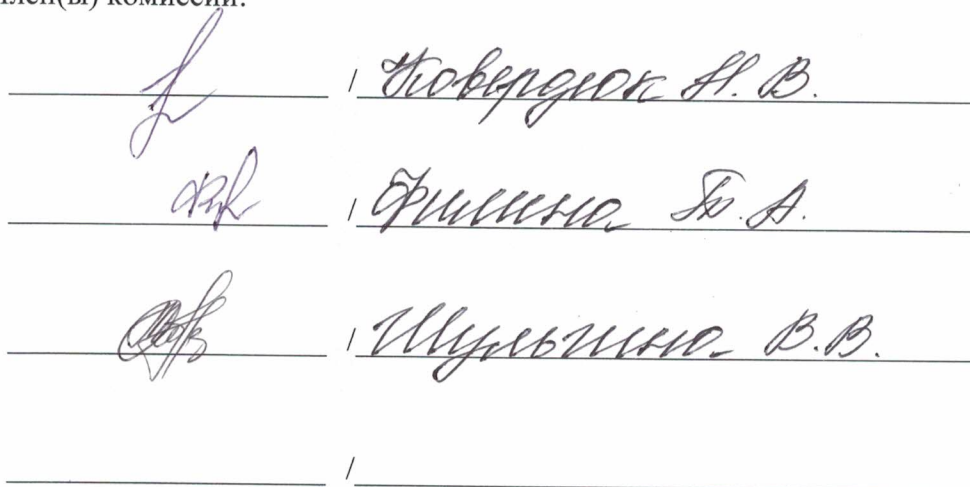 член(ы) комиссии:
/ Ковердюк Н. В.
/ Филина Т. А.
/ Шульгина В. В.
/